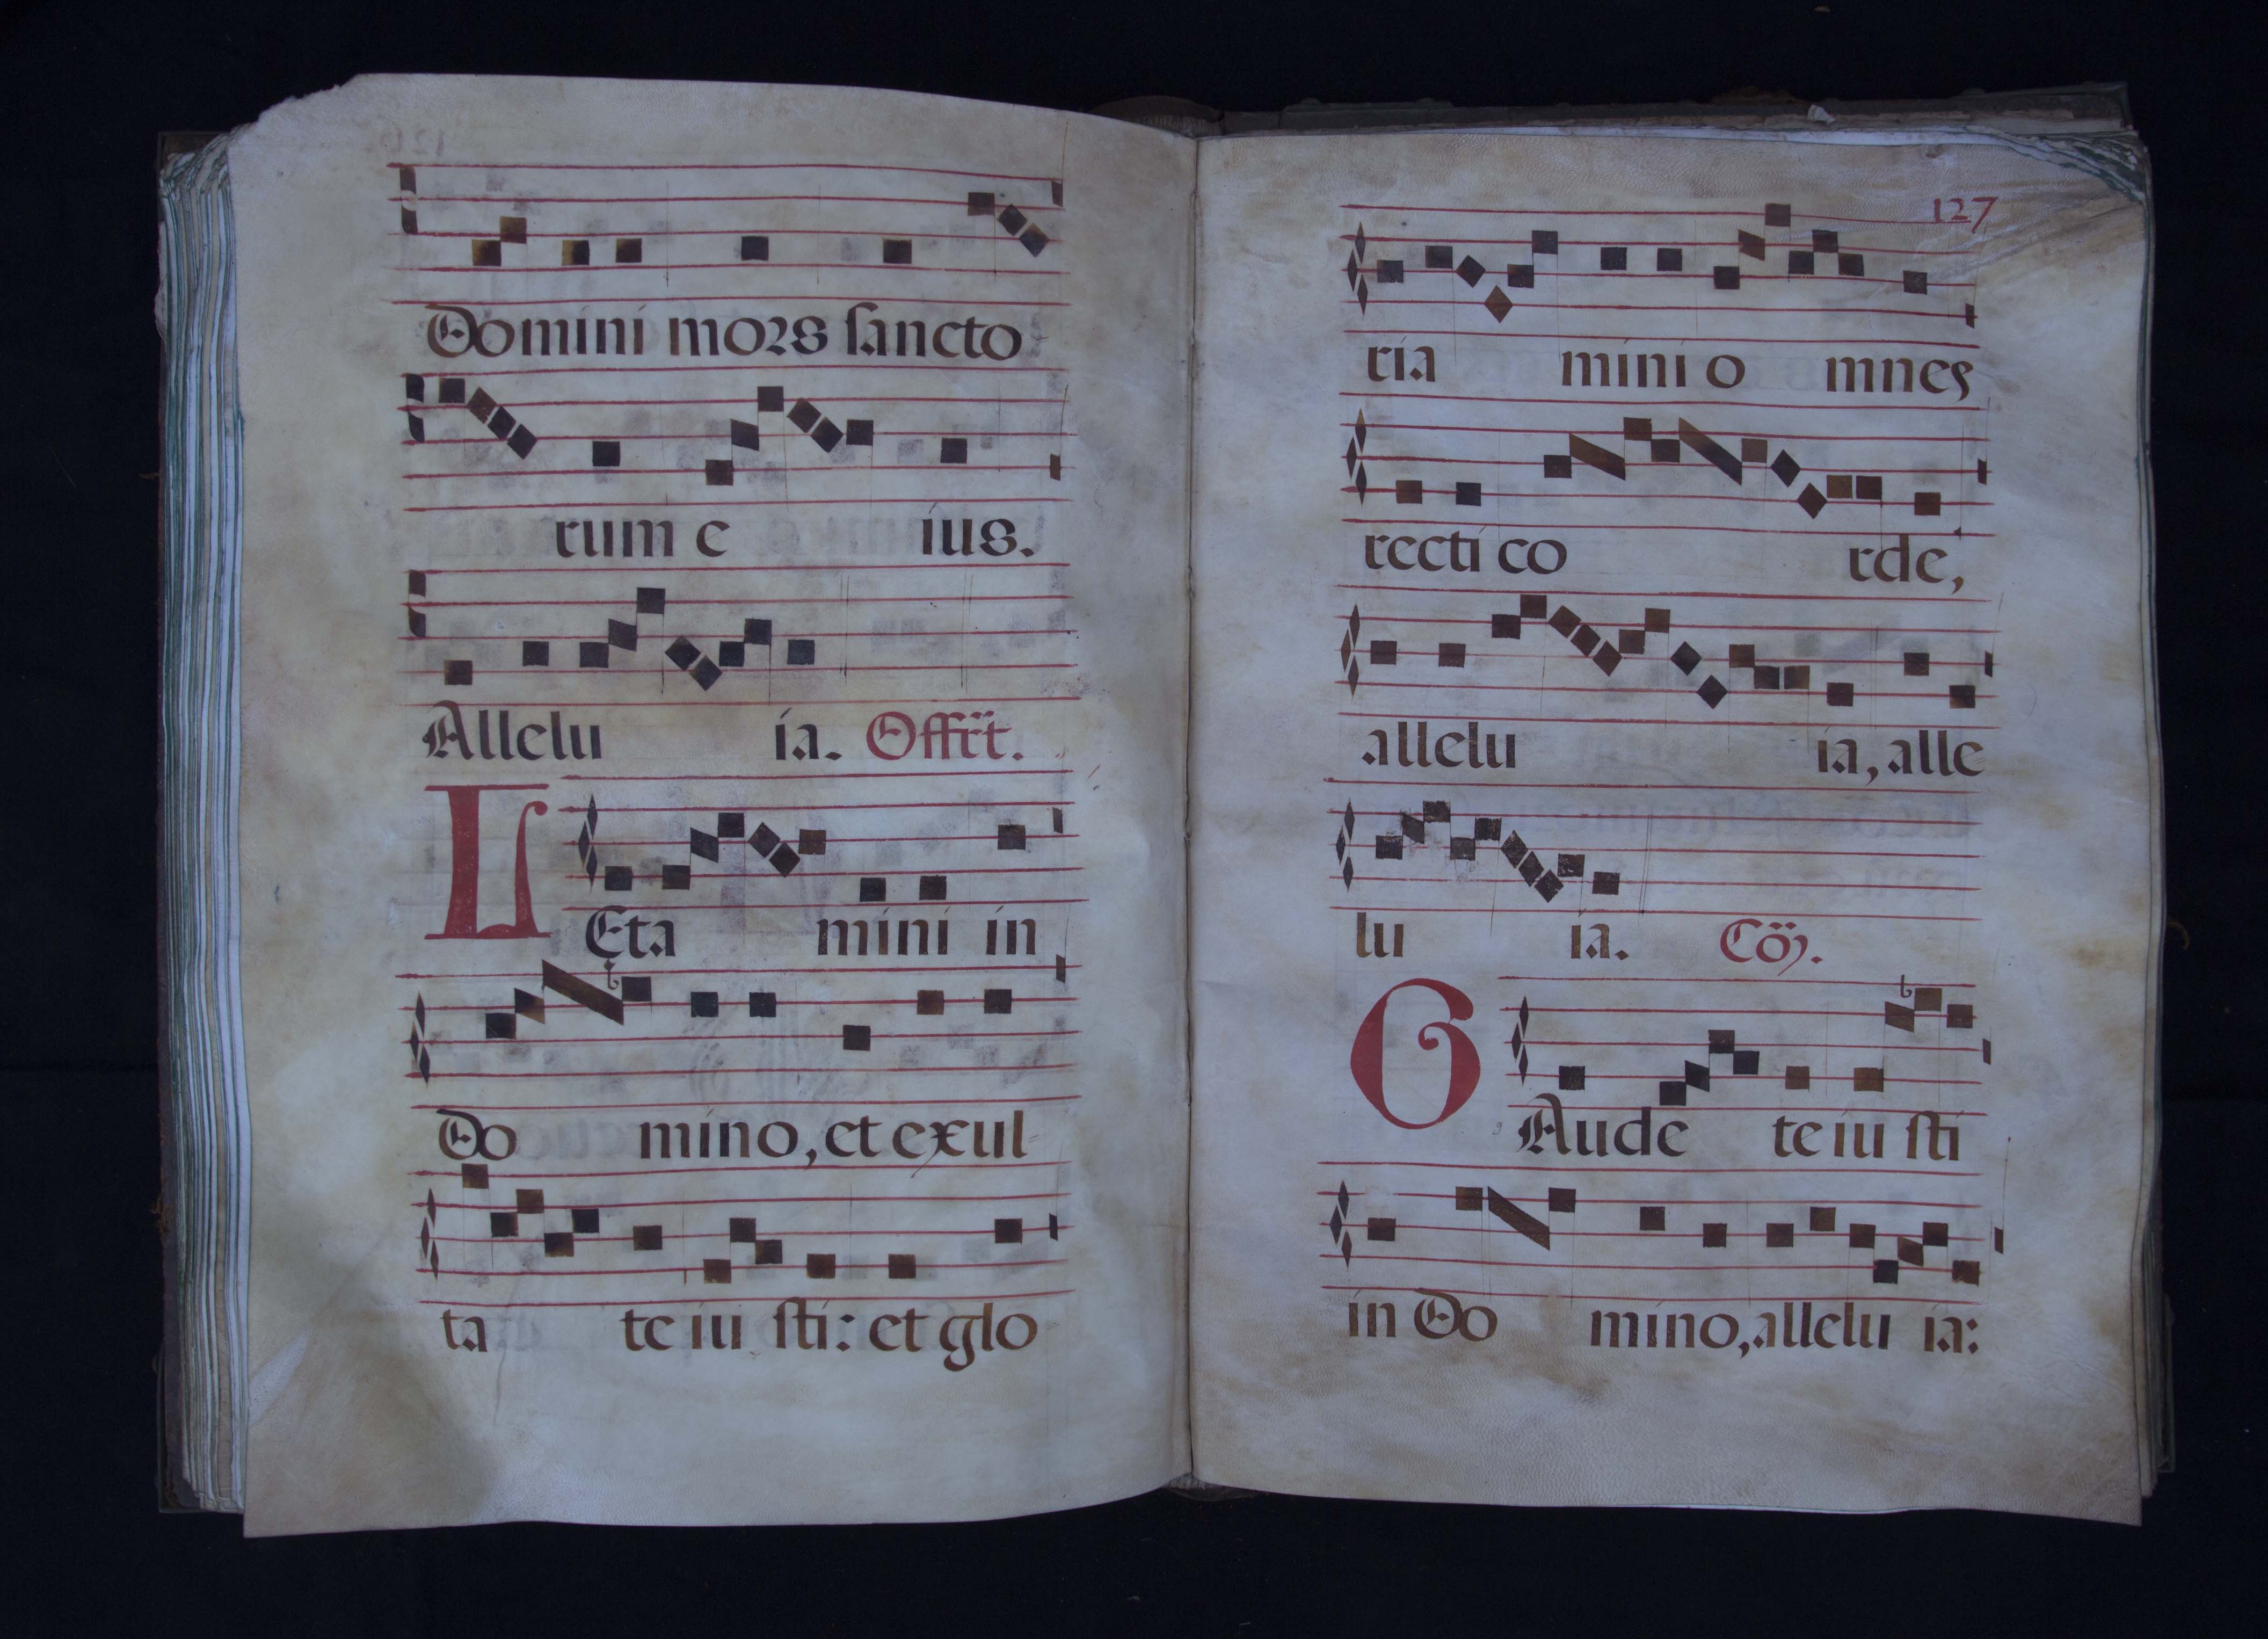 Domini mors sancto
rum e ius.
Allelu ia. Offrt.
LEta mini in
Do mino, et exul
ta te iu sti: et glo
127
ria mini o mnes
recti co rde,
allelu ia, alle
lu ia. Cõ.
GAude te iu sti
in Do mino, allelu ia: